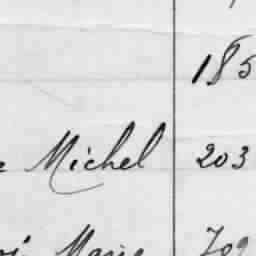 185
e Michel 203
Marie 709